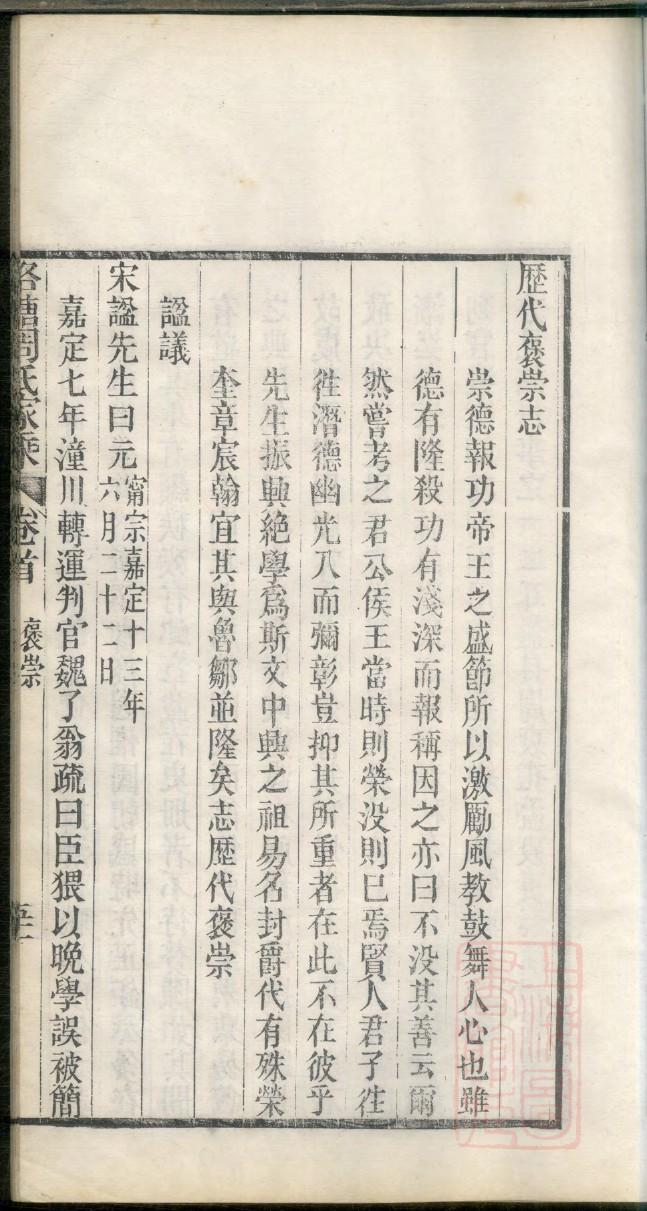 歷代褒崇志
崇德報功帝王之盛節所以激勵風教鼓舞人心也雖
德有隆殺功有淺深而報稱因之亦曰不没其善云爾
然嘗考之君公侯王當時則榮没則已焉賢人君子徃
徃潛德幽光乆而彌彰豈抑其所重者在此不在彼乎
先生振興絶學爲斯文中興之祖易名封爵代有殊榮
奎章宸翰宜其與魯鄒並隆矣志歷代褒崇
謚議
宋謚先生曰元
甯宗嘉定十三年
六月二十二日
嘉定七年潼川轉運判官魏了翁疏曰臣猥以晚學誤被簡
周氏家乘 卷首 褒崇